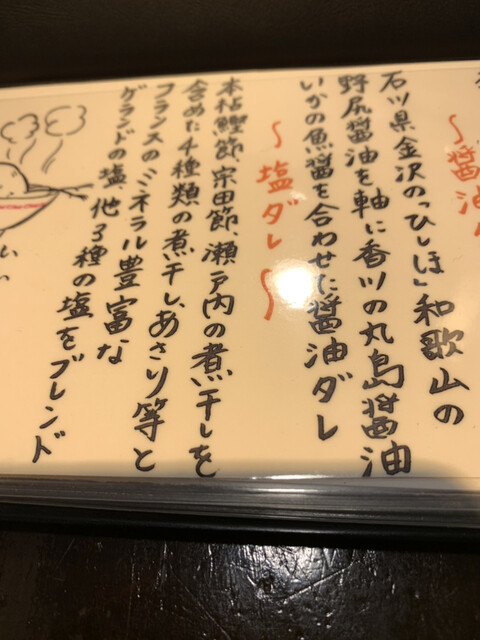 〜醤油
石川県金沢の「ひしほ」和歌山の
野尻醤油を軸に香川の丸島醤油
いかの魚醤を合わせた醤油ダレ
〜塩ダレ〜
本枯鰹節、宗田節、瀬戸内の煮干しを
含めた4種類の煮干し、あさり等と
フランスのミネラル豊富な
ゲランドの塩、他3種の塩をブレンド